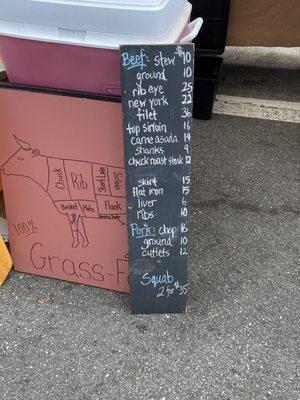 Beef: stew $10
ground 10
rib eye 25
new york 22
filet 36
top sirloin 16
carne asada 14
shanks 9
chuck roast steak 12
skirt 15
flat iron 15
liver 6
ribs 10
Pork: chop 16
ground 10
cutlets 12
Squab
2 for $35
Chuck
Rib
Short loin
Sirloin
Brisket
Plate
Flank
100%
Grass-F